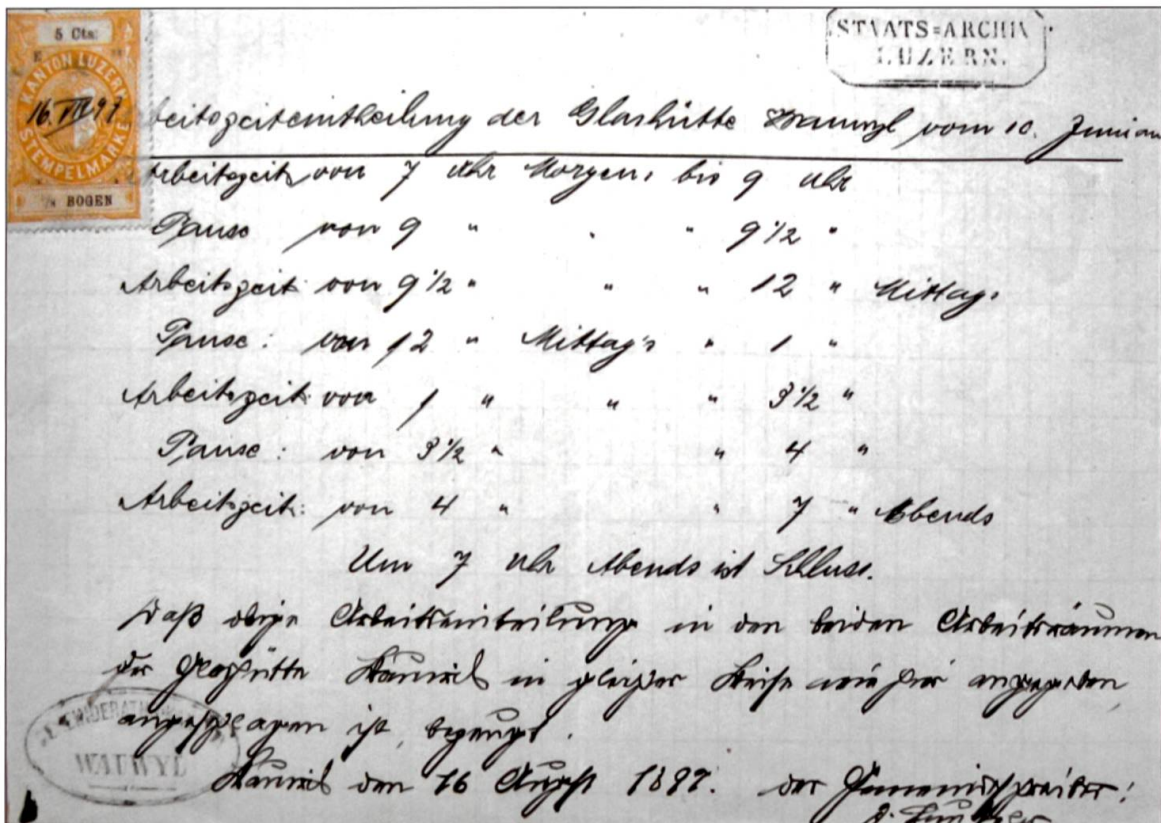 5 Cts.
KANTON LUZERN
16. VIII 97
STEMPELMARKE
BOGEN
STAATS=ARCHIV
LUZERN.
beitszeiteintheilung der Glashütte Wauwyl vom 10. Juni an
Arbeitszeit von 7 Uhr Morgens bis 9 Uhr
Pause von 9 " " " 9 1/2 "
Arbeitszeit: von 9 1/2 " " " 12 " Mittags
Pause: von 12 " Mittag's " 1 "
Arbeitszeit: von 1 " " " 3 1/2 "
Pause: von 3 1/2 " " 4 "
Arbeitszeit: von 4 " " 7 " Abends
Um 7 Uhr Abends ist Schluss.
Daß obige Arbeitseinteilung in den beiden Arbeitsräumen
der Glashütte Wauwil in gleicher Weise wie hier angegeben
angeschlagen ist, bezeugt.
Wauwil den 16 August 1897. der Gemeindschreiber:
GEMEINDERATH
WAUWYL